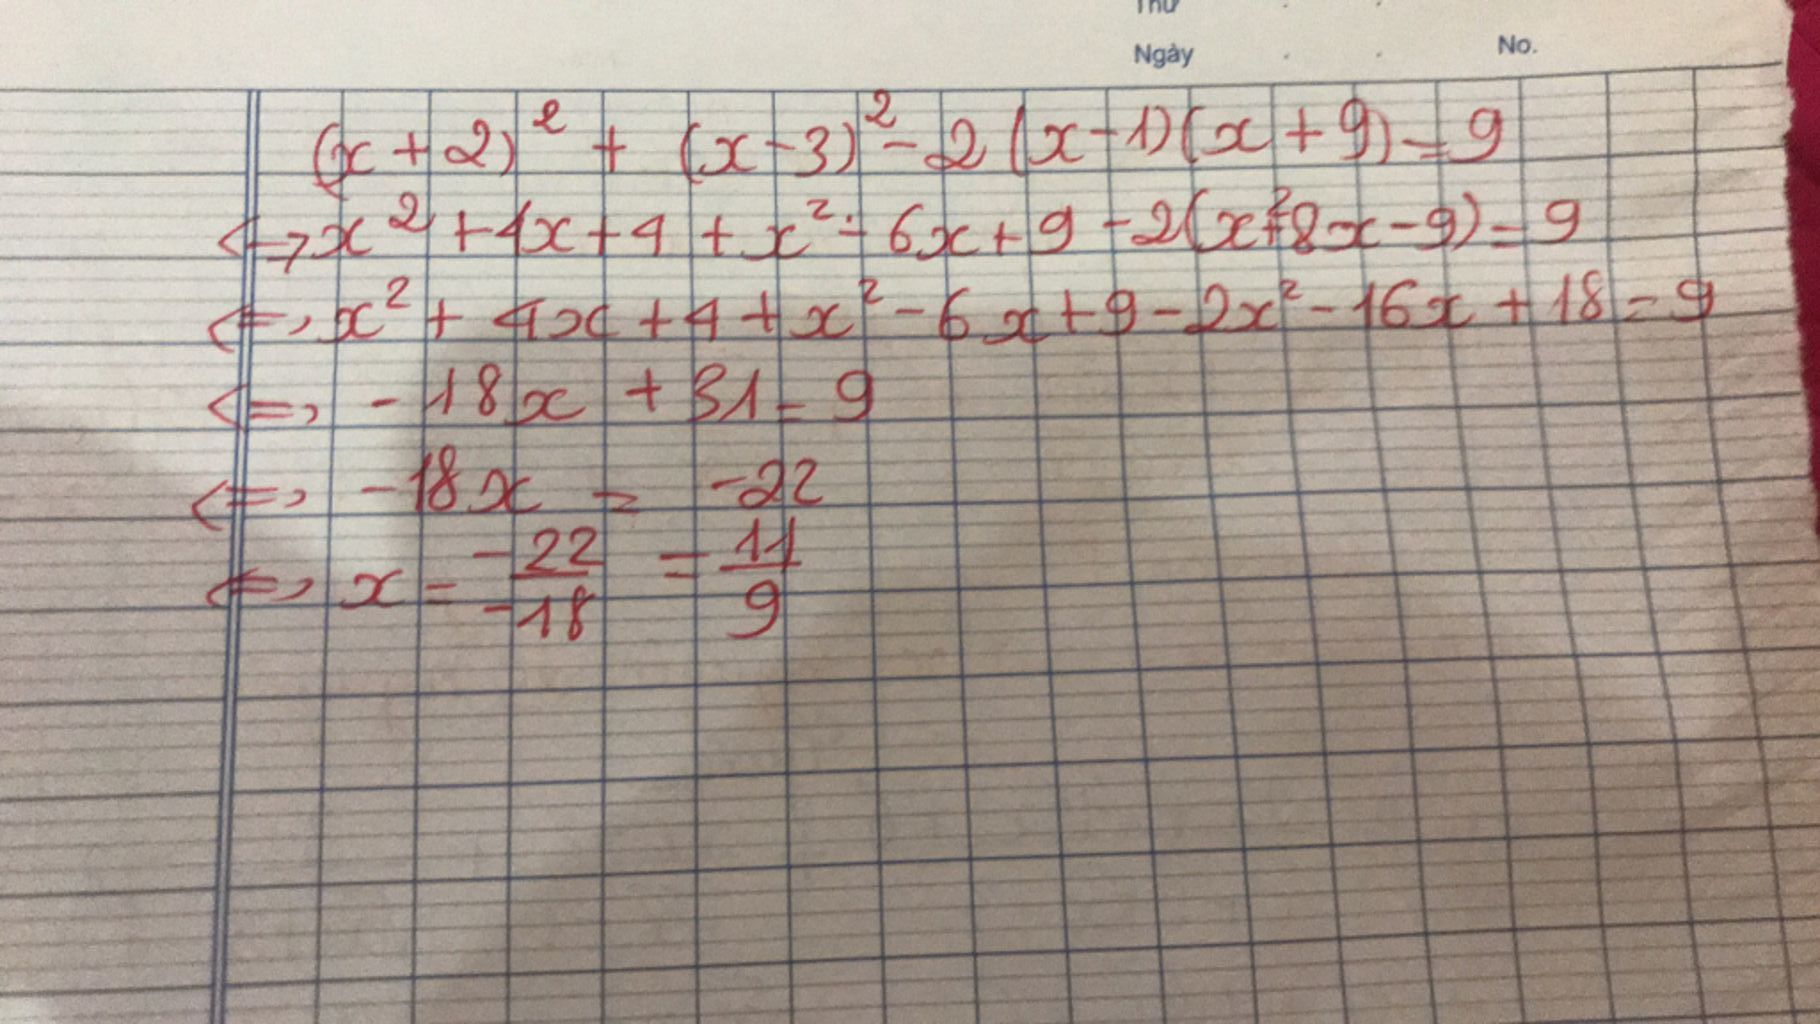 Thứ . .
Ngày . . No.
(x + 2)² + (x - 3)² - 2(x - 1)(x + 9) = 9
<=> x² + 4x + 4 + x² - 6x + 9 - 2(x² + 8x - 9) = 9
<=> x² + 4x + 4 + x² - 6x + 9 - 2x² - 16x + 18 = 9
<=> - 18x + 31 = 9
<=> - 18x = -22
<=> x = -22/-18 = 11/9